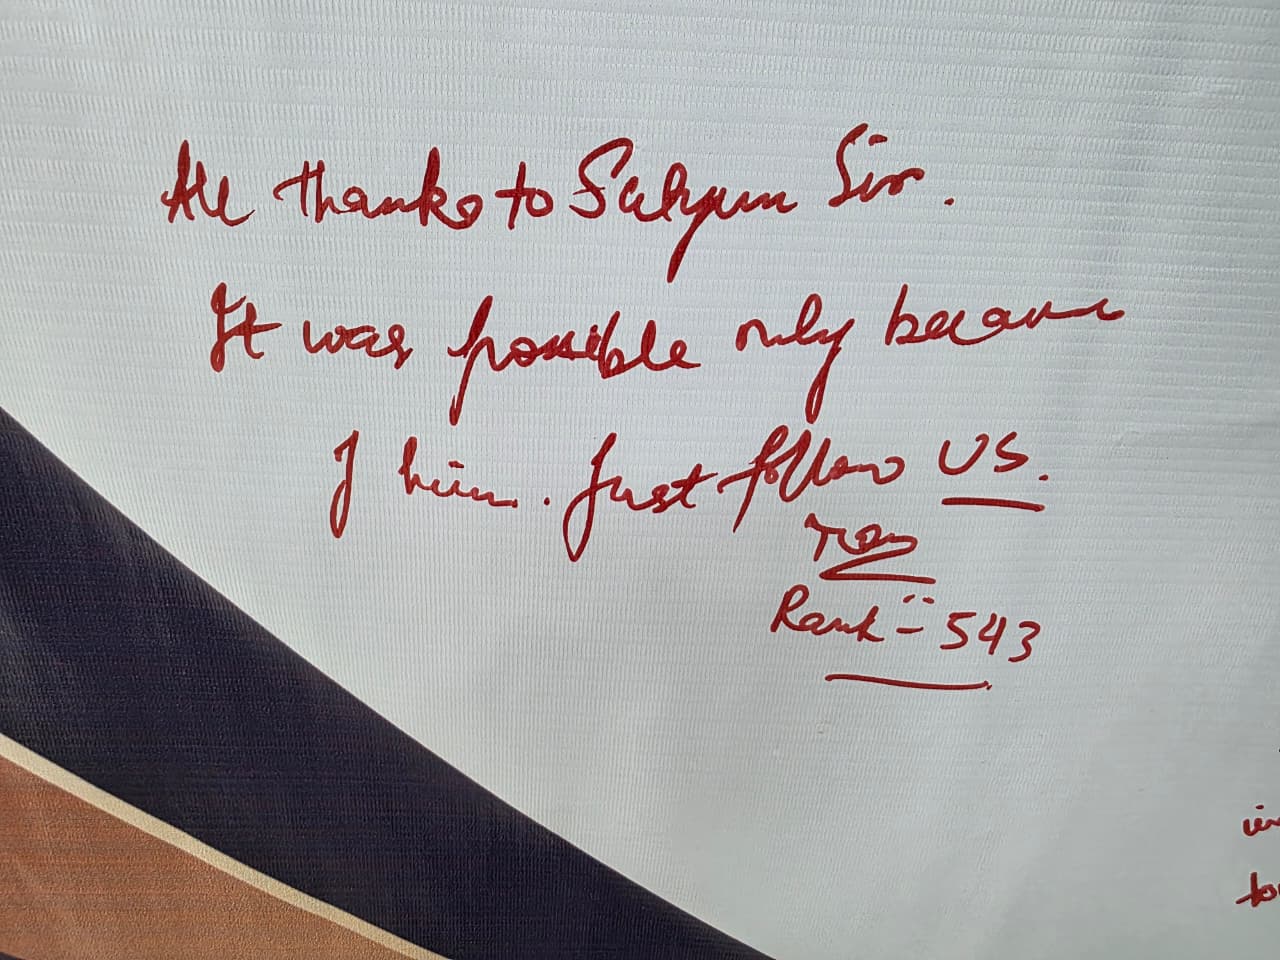 All thanks to Satyum Sir.
It was possible only because
of him. Just follow US.
Rank - 543